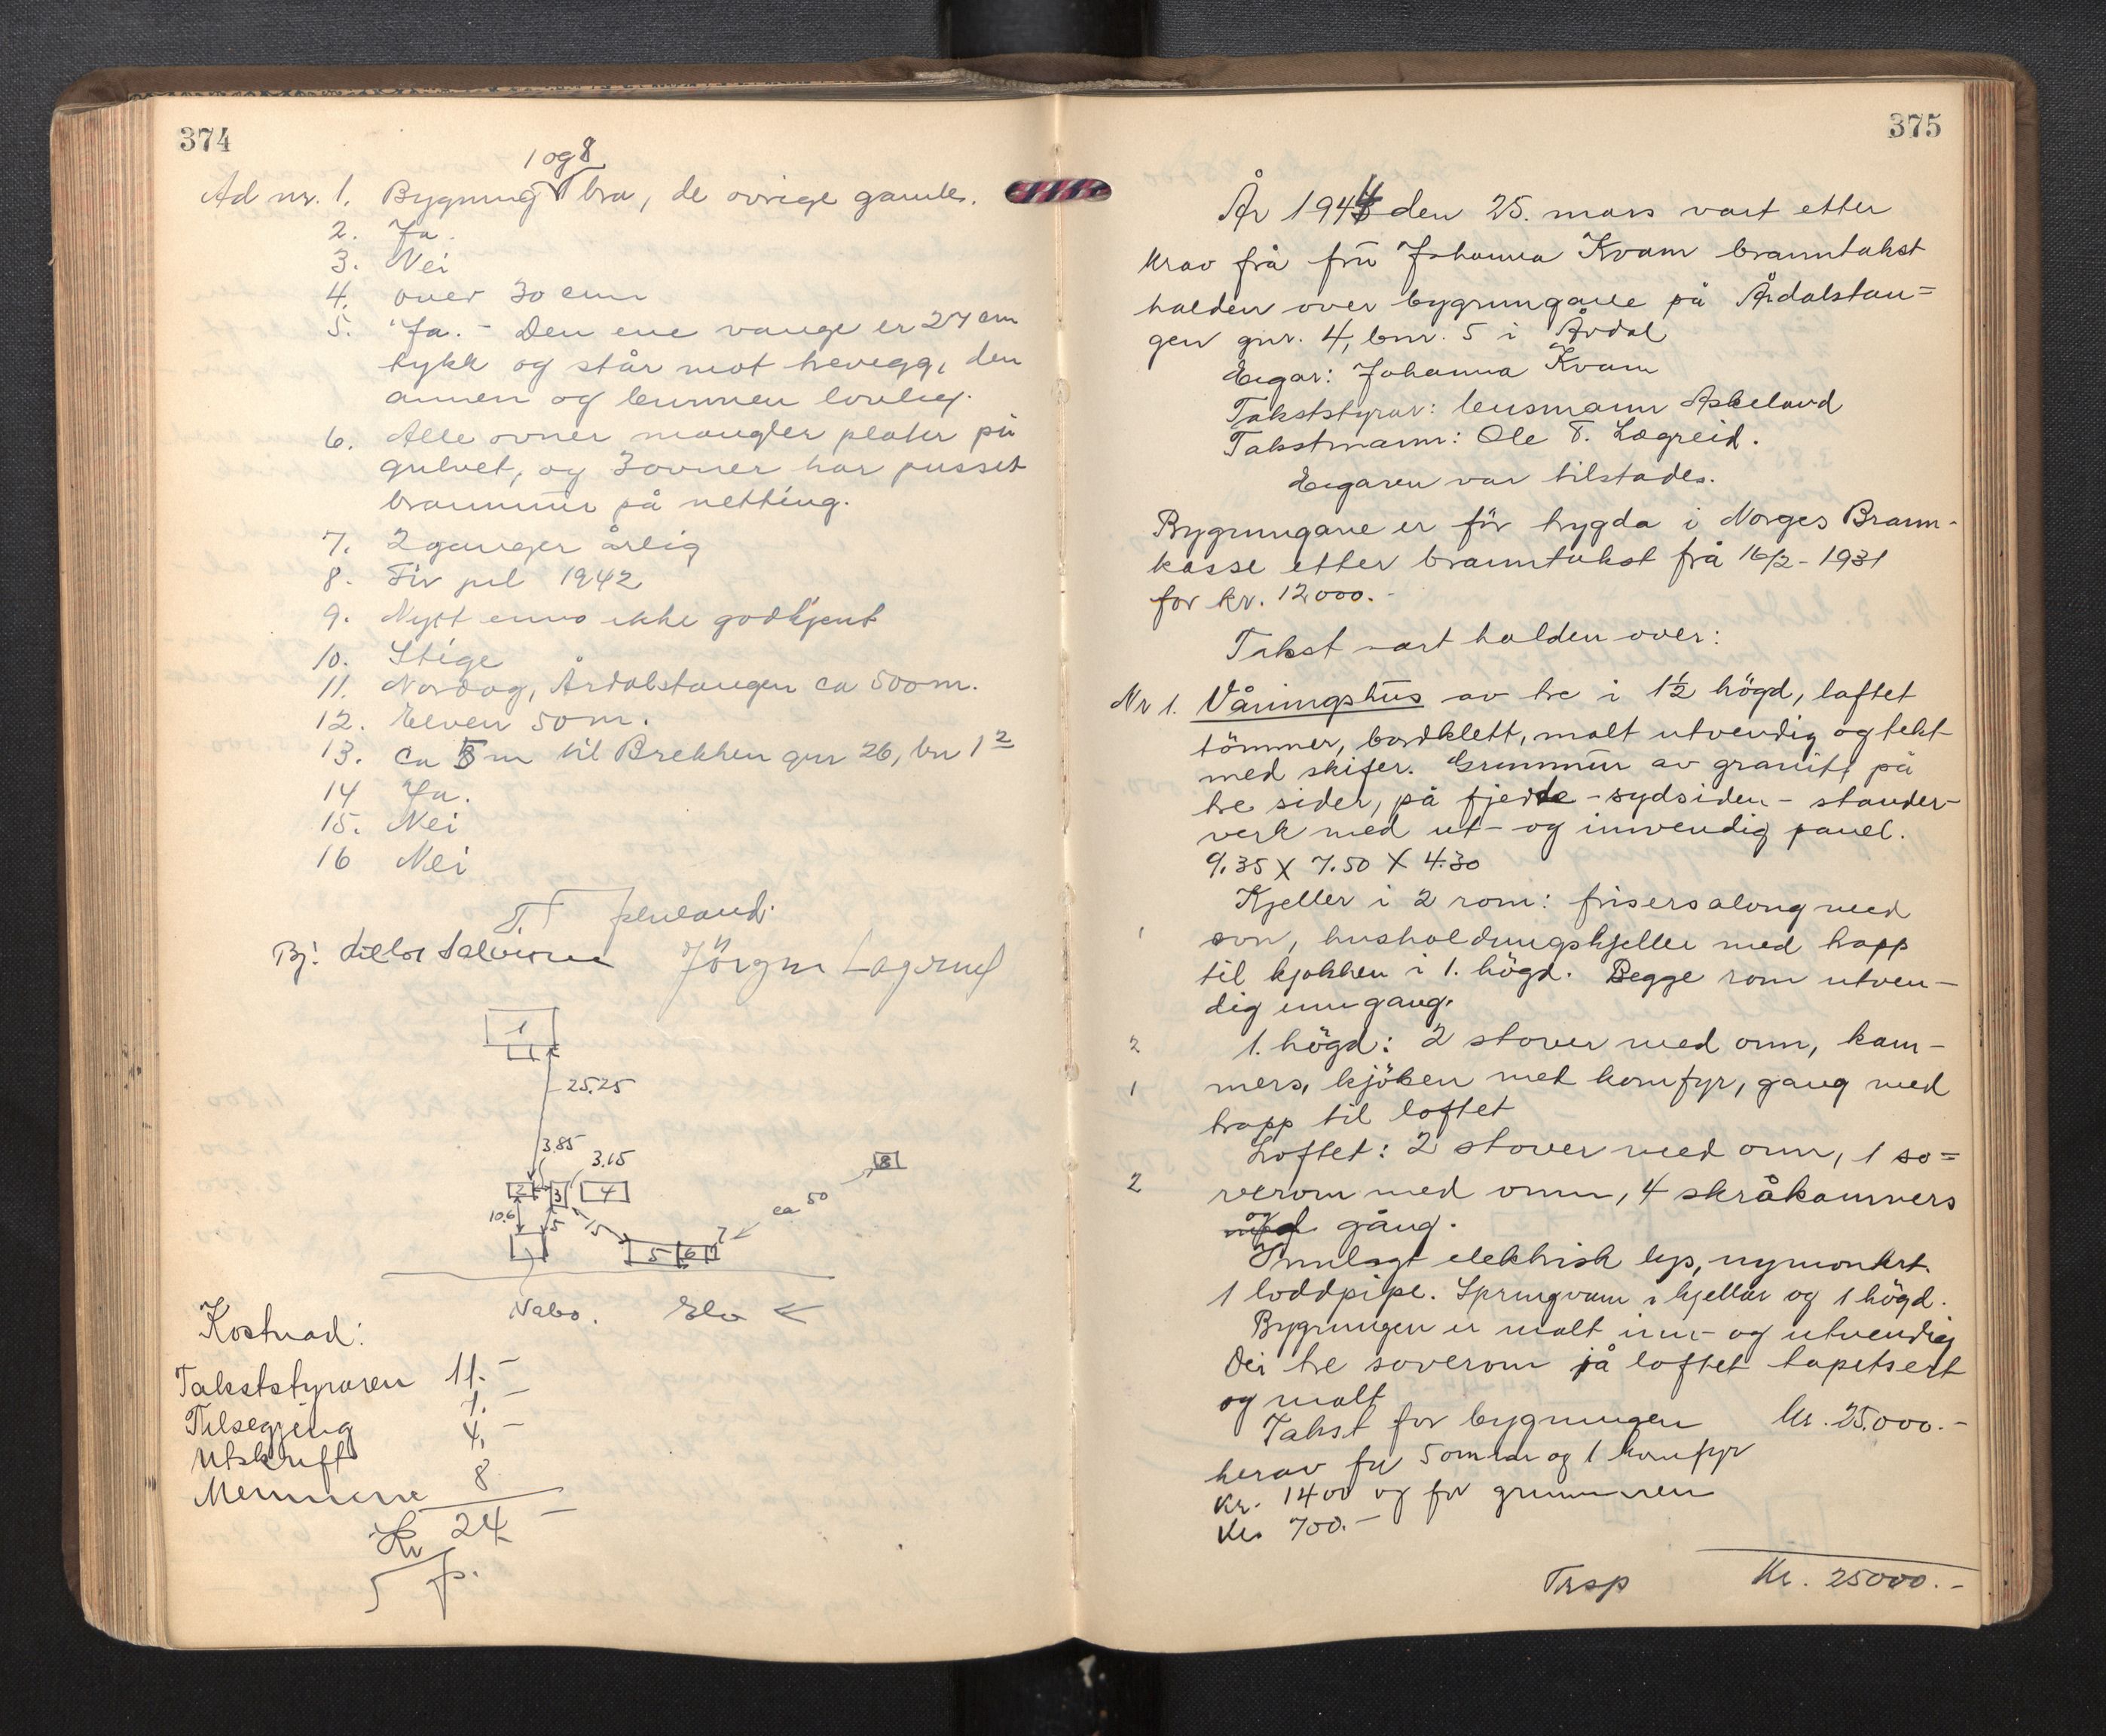 374
1 og 8
Ad nr. 1. Bygning bra, de övrige gamle.
2. Ja.
3. Nei
4. over 30 cm
5. Ja. - Den ene vange er 27 cm
tykk og står mot trevegg, den
annen og brunnen lovlig.
6. Alle ovner mangler plater på
gulvet, og 3 ovner har pusset
brannmur på netting.
7. 2 ganger årlig
8. Før jul 1942
9. Nytt enno ikke godkjent
10. Stige
11. Nordag, Årdalstangen ca 500 m.
12. Elven 50 m.
13. ca 5 m til Brekken gnr 26, bn 12
14 Ja.
15. Nei
16 Nei
Bj:
Jörgen
1
25.25
3.85
3.15
2 3 4
8
10.6
5
15
ca 50
5 6 7
7
Nabo. Elv
Kostnad:
Takststyraren 11.-
Tilsegjing 1.-
Utskrift 4.-
Mennene 8
Kr 24 -
375
År 1944 den 25. mars vart etter
krav frå fru Johanna Kvam branntakst
halden over bygningane på Årdalstan=
gen gnr. 4, bnr. 5 i Årdal
Eigar: Johanna Kvam
Takststyrar: lensmann Askeland
Takstmann: Ole T. Lægreid.
Eigaren var tilstades.
Bygningane er för trygda i Norges Brann-
kasse etter branntakst frå 16/2 - 1931
for kr. 12000.-
Takst vart halden over:
Nr 1. Våningshus av tre i 1½ högd, laftet
tömmer, bordklett, malt utvendig og tekt
med skifer. Grunnmur av granitt på
tre sider, på fjerde - sydsiden - stander-
verk med ut- og innvendig panel.
9.35 X 7.50 X 4.30
Kjeller i 2 rom: frisersalong med
1 ovn, husholdningskjeller med trapp
til kjøkken i 1. högd. Begge rom utven-
dig inngang.
2 1. högd: 2 stover med omn, kam-
1 mers, kjöken med komfyr, gang med
trapp til loftet
Loftet: 2 stover med omn, 1 so=
2 verom med omn, 4 skråkammers
og gång.
Innlagt elektrisk lys, nymontert.
1 loddpipe. Springvann i kjellar og 1 högd.
Bygningen er malt inn- og utvendig
Dei tre soverom på loftet tapetsert
og malt
Takst for bygningen kr. 25.000.-
herav for 5 omnar og 1 komfyr
kr. 1400 og for grunnmuren
kr. 700.-
Trsp Kr. 25000.-